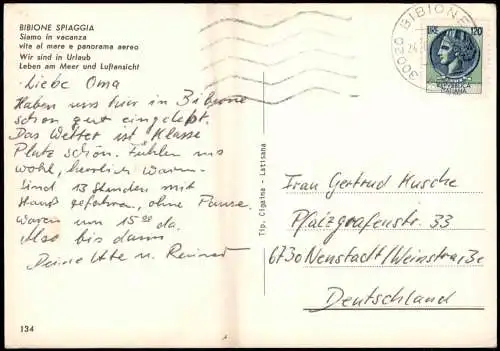 BIBIONE SPIAGGIA
Siamo in vacanza
vita al mare e panorama aereo
Wir sind in Urlaub
Leben am Meer und Luftansicht
Liebe Oma
Haben uns hier in Bibione
schon gut eingelebt.
Das Wetter ist Klasse
Platz schön. Fühlen uns
wohl, herrlich warm.
Sind 13 Stunden mit
gefahren, ohne Pause.
Waren um 15 00 da.
Also bis dann
Deine Ute u.
134
Tip. Cigaina - Latisana
30020 BIBIONE
LIRE 120
REPUBBLICA
ITALIANA
Frau Gertrud
Pfalzgrafenstr. 33
6730 Neustadt/Weinstraße
Deutschland